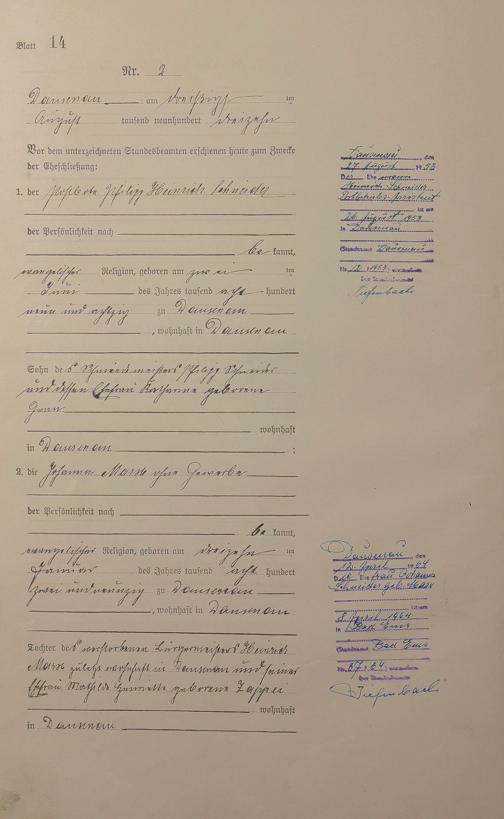 Blatt 14
Nr. 2
Dausenau am dreißigsten
August tausend neunhundert dreizehn
Vor dem unterzeichneten Standesbeamten erschienen heute zum Zwecke
der Eheschließung:
1. der Postbote Philipp Heinrich Schneider
der Persönlichkeit nach
be kannt,
evangelischer Religion, geboren am zweiten
Juni des Jahres tausend acht hundert
neun und achtzig zu Dausenau
, wohnhaft in Dausenau
Sohn des Schmiedmeisters Philipp Schneider
und dessen Ehefrau Katharine geborene
wohnhaft
in Dausenau ;
2. die Johanna Maxx ohne Gewerbe
der Persönlichkeit nach
be kannt,
evangelischer Religion, geboren am dreizehnten
Januar des Jahres tausend acht hundert
zwei und neunzig zu Dausenau
, wohnhaft in Dausenau
Tochter des verstorbenen Bürgermeisters Heinrich
zuletzt wohnhaft in Dausenau und seiner
Ehefrau Mathilde Henriette geborene
wohnhaft
in Dausenau
Dausenau, den
27. August 1953
Der Ehemann
Heinrich Schneider
ist am
26. August 1953
in Dausenau
Standesamt Dausenau
Nr. 12/1953
Der Standesbeamte
Tiefenbach
Dausenau, den
12. April 1964
Die Ehefrau Johanna
Schneider geb.
ist am
8. April 1964
in Bad Ems
Standesamt Bad Ems
Nr. 57/64
Der Standesbeamte
Tiefenbach